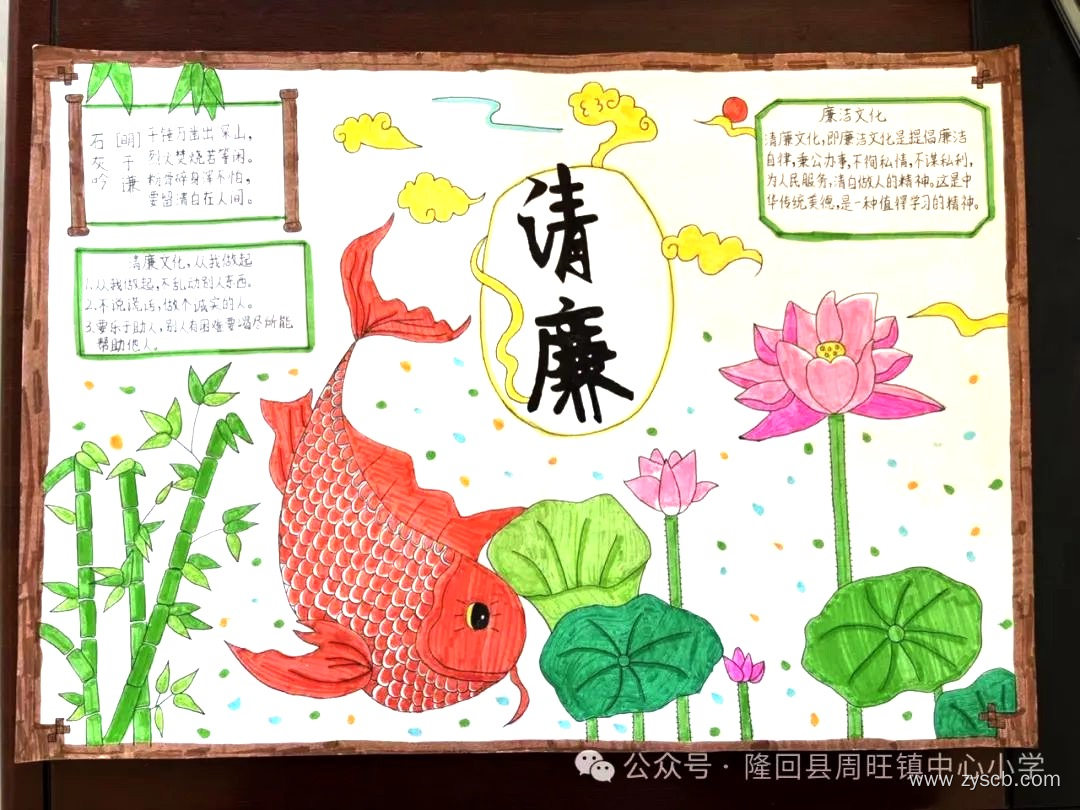 石灰吟
[明]于谦
千锤万凿出深山，
烈火焚烧若等闲。
粉骨碎身浑不怕，
要留清白在人间。
清廉文化，从我做起
1.从我做起，不乱动别人东西。
2.不说谎话，做个诚实的人。
3.要乐于助人，别人有困难要竭尽所能
帮助他人。
清廉
廉洁文化
清廉文化，即廉洁文化是提倡廉洁
自律，秉公办事，不徇私情，不谋私利，
为人民服务，清白做人的精神。这是中
华传统美德，是一种值得学习的精神。
公众号·隆回县周旺镇中心小学
www.zyscb.com